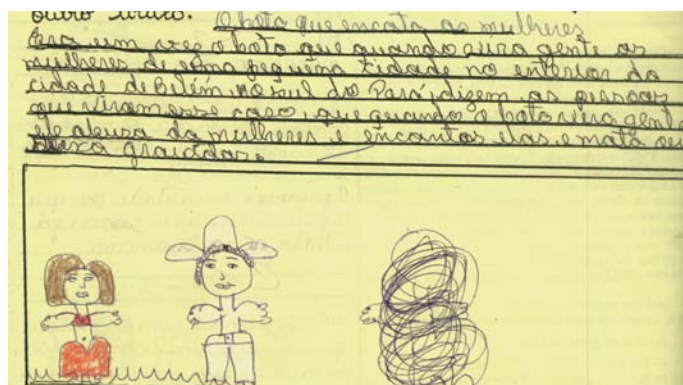 outro O bota que encata as mulheres
Era um ves o bota que quando vira gente as
mulheres de uma pequina cidade no interior da
cidade de Belém, no sul do Pará, dizem as pessoas
que viram esse caso, que quando o bota vira gente
ele abusa da mulheres e encantas elas e mata ou
deixa graiddas.